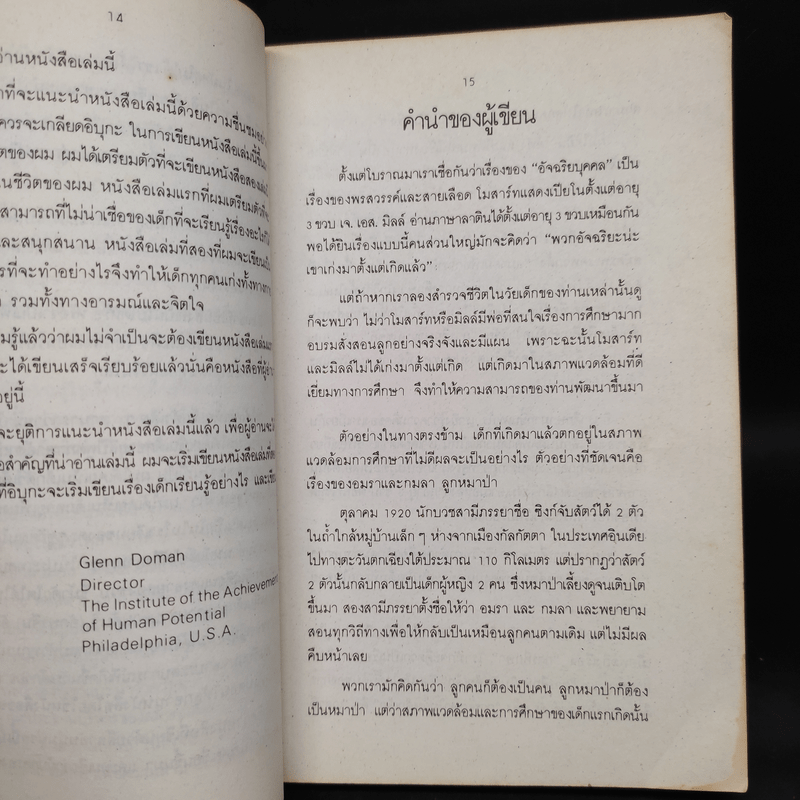 14
อ่านหนังสือเล่มนี้
ที่จะแนะนำหนังสือเล่มนี้ด้วยความชื่นชม
ควรจะเกลียดอิบุกะ ในการเขียนหนังสือเล่มนี้ขึ้น
ของผม ผมได้เตรียมตัวที่จะเขียนหนังสือสองเล่ม
นชีวิตของผม หนังสือเล่มแรกที่ผมเตรียมตัว
สามารถที่ไม่น่าเชื่อของเด็กที่จะเรียนรู้เรื่องอะไร
และสนุกสนาน หนังสือเล่มที่สองที่ผมจะเขียน
รที่จะทำอย่างไรจึงทำให้เด็กทุกคนเก่งทั้งทาง
รวมทั้งทางอารมณ์และจิตใจ
มรู้แล้วว่าผมไม่จำเป็นจะต้องเขียนหนังสือเล่ม
ะได้เขียนเสร็จเรียบร้อยแล้วนั่นคือหนังสือที่ผู้อ่าน
อยู่นี้
จะยุติการแนะนำหนังสือเล่มนี้แล้ว เพื่อผู้อ่านจะ
อสำคัญที่น่าอ่านเล่มนี้ ผมจะเริ่มเขียนหนังสือเล่มที่
ที่อิบุกะจะเริ่มเขียนเรื่องเด็กเรียนรู้อย่างไร และ
Glenn Doman
Director
The Institute of the Achievement
of Human Potential
Philadelphia, U.S.A.
15
คำนำของผู้เขียน
ตั้งแต่โบราณมาเราเชื่อกันว่าเรื่องของ “อัจฉริยบุคคล” เป็น
เรื่องของพรสวรรค์และสายเลือด โมสาร์ทแสดงเปียโนตั้งแต่อายุ
3 ขวบ เจ. เอส. มิลล์ อ่านภาษาลาตินได้ตั้งแต่อายุ 3 ขวบเหมือนกัน
พอได้ยินเรื่องแบบนี้คนส่วนใหญ่มักจะคิดว่า “พวกอัจฉริยะน่ะ
เขาเก่งมาตั้งแต่เกิดแล้ว”
แต่ถ้าหากเราลองสำรวจชีวิตในวัยเด็กของท่านเหล่านั้นดู
ก็จะพบว่า ไม่ว่าโมสาร์ทหรือมิลล์มีพ่อที่สนใจเรื่องการศึกษามาก
อบรมสั่งสอนลูกอย่างจริงจังและมีแผน เพราะฉะนั้นโมสาร์ท
และมิลล์ไม่ได้เก่งมาตั้งแต่เกิด แต่เกิดมาในสภาพแวดล้อมที่ดี
เยี่ยมทางการศึกษา จึงทำให้ความสามารถของท่านพัฒนาขึ้นมา
ตัวอย่างในทางตรงข้าม เด็กที่เกิดมาแล้วตกอยู่ในสภาพ
แวดล้อมการศึกษาที่ไม่ดีผลจะเป็นอย่างไร ตัวอย่างที่ชัดเจนคือ
เรื่องของอมราและกมลา ลูกหมาป่า
ตุลาคม 1920 นักบวชสามีภรรยาชื่อ ซิงก์จับสัตว์ได้ 2 ตัว
ในถ้ำใกล้หมู่บ้านเล็ก ๆ ห่างจากเมืองกัลกัตตา ในประเทศอินเดีย
ไปทางตะวันตกเฉียงใต้ประมาณ 110 กิโลเมตร แต่ปรากฏว่าสัตว์
2 ตัวนั้นกลับกลายเป็นเด็กผู้หญิง 2 คน ซึ่งหมาป่าเลี้ยงดูจนเติบโต
ขึ้นมา สองสามีภรรยาตั้งชื่อให้ว่า อมรา และ กมลา และพยายาม
สอนทุกวิถีทางเพื่อให้กลับเป็นเหมือนลูกคนตามเดิม แต่ไม่มีผล
คืบหน้าเลย
พวกเรามักคิดกันว่า ลูกคนก็ต้องเป็นคน ลูกหมาป่าก็ต้อง
เป็นหมาป่า แต่ว่าสภาพแวดล้อมและการศึกษาของเด็กแรกเกิดนั้น